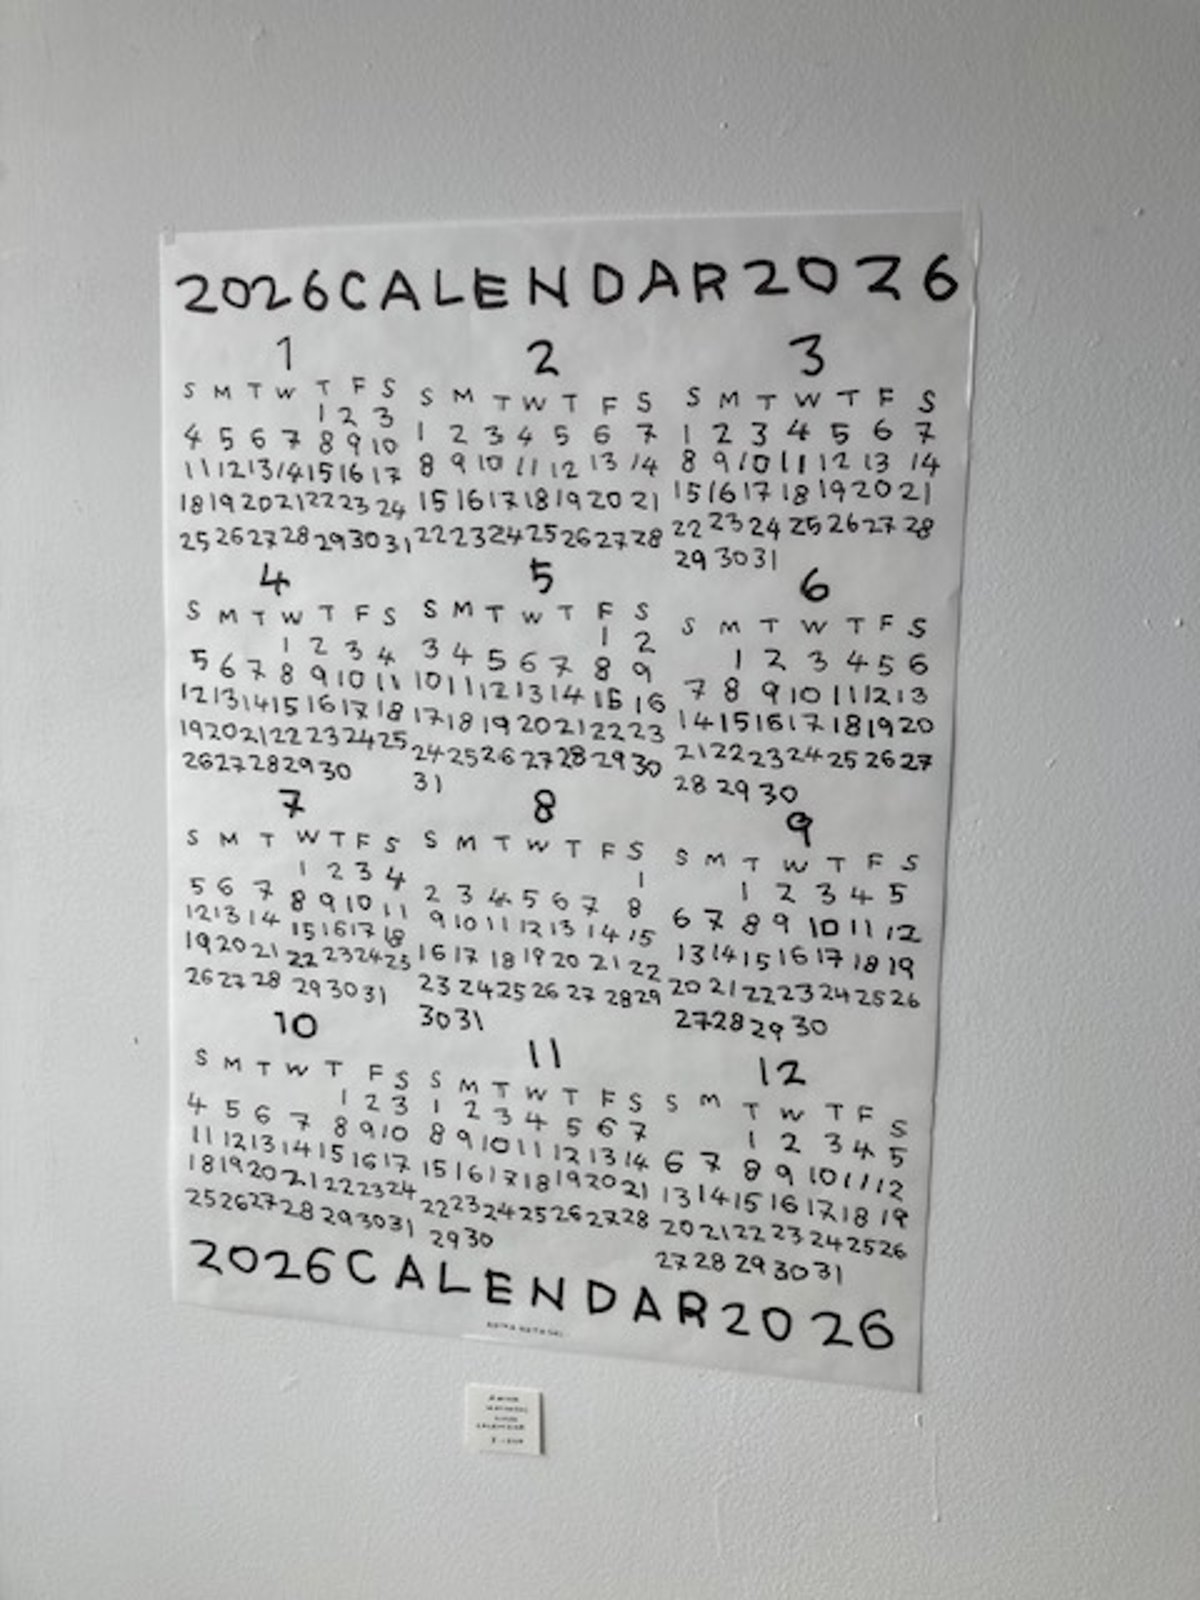 2026 CALENDAR 2026
1
S M T W T F S
1 2 3
4 5 6 7 8 9 10
11 12 13 14 15 16 17
18 19 20 21 22 23 24
25 26 27 28 29 30 31
2
S M T W T F S
1 2 3 4 5 6 7
8 9 10 11 12 13 14
15 16 17 18 19 20 21
22 23 24 25 26 27 28
3
S M T W T F S
1 2 3 4 5 6 7
8 9 10 11 12 13 14
15 16 17 18 19 20 21
22 23 24 25 26 27 28
29 30 31
4
S M T W T F S
1 2 3 4
5 6 7 8 9 10 11
12 13 14 15 16 17 18
19 20 21 22 23 24 25
26 27 28 29 30
5
S M T W T F S
1 2
3 4 5 6 7 8 9
10 11 12 13 14 15 16
17 18 19 20 21 22 23
24 25 26 27 28 29 30
31
6
S M T W T F S
1 2 3 4 5 6
7 8 9 10 11 12 13
14 15 16 17 18 19 20
21 22 23 24 25 26 27
28 29 30
7
S M T W T F S
1 2 3 4
5 6 7 8 9 10 11
12 13 14 15 16 17 18
19 20 21 22 23 24 25
26 27 28 29 30 31
8
S M T W T F S
1
2 3 4 5 6 7 8
9 10 11 12 13 14 15
16 17 18 19 20 21 22
23 24 25 26 27 28 29
30 31
9
S M T W T F S
1 2 3 4 5
6 7 8 9 10 11 12
13 14 15 16 17 18 19
20 21 22 23 24 25 26
27 28 29 30
10
S M T W T F S
1 2 3
4 5 6 7 8 9 10
11 12 13 14 15 16 17
18 19 20 21 22 23 24
25 26 27 28 29 30 31
11
S M T W T F S
1 2 3 4 5 6 7
8 9 10 11 12 13 14
15 16 17 18 19 20 21
22 23 24 25 26 27 28
29 30
12
S M T W T F S
1 2 3 4 5
6 7 8 9 10 11 12
13 14 15 16 17 18 19
20 21 22 23 24 25 26
27 28 29 30 31
2026 CALENDAR 2026